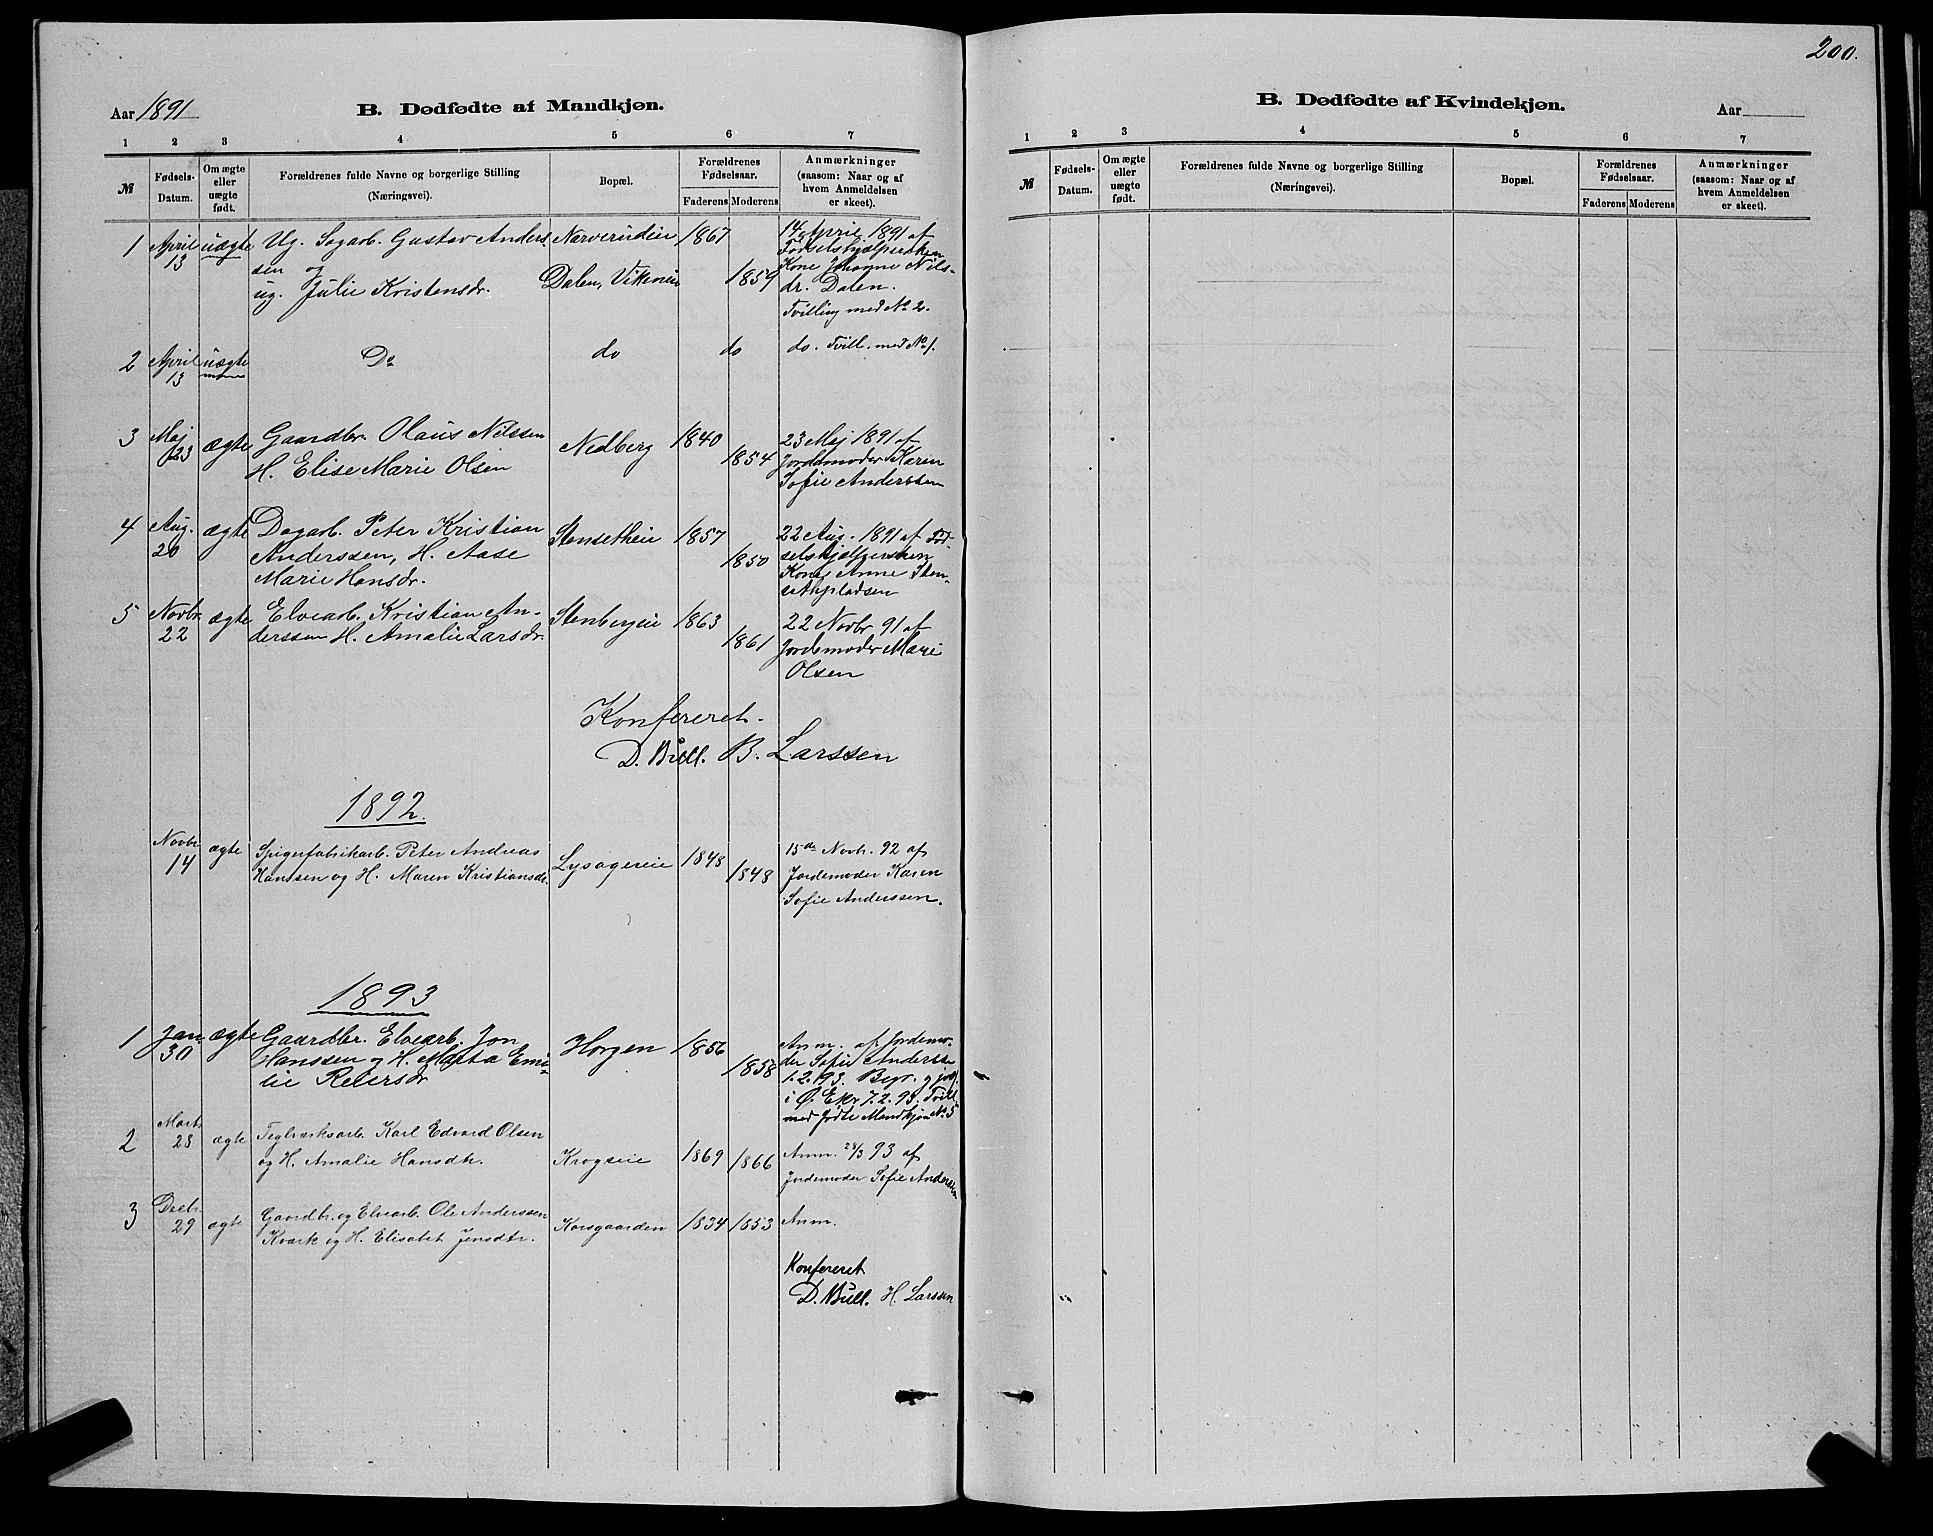 200.
Aar 1891
B. Dødfødte af Mandkjøn.
1 2 3 4 5 6 7
№
Fødsels-Datum.
Om ægte eller uægte født.
Forældrenes fulde Navne og borgerlige Stilling
(Næringsvei).
Bopæl.
Forældrenes Fødselsaar.
Faderens Moderens
Anmærkninger
(saasom: Naar og af
hvem Anmeldelsen
er skeet).
1 April 13 uægte Ug. Sagarb. Gustav Anders
sen og
ug. Julie Kristensdr.
Narverudeie
Dalen, Vikeneie
1867 1859
14 April 1891 af
Fødselshjælpersken
Kone Johanne Nils-
dr. Dalen.
Tvilling med No 2.
2 April 13 uægte Do do do do. Tvill. med No 1.
3 Maj 23 ægte Gaardbr. Olaus Nilssen
H. Elise Marie Olsen
Nedberg 1840 1854
23 Maj 1891 af
Jordemoder Karen
Sofie Anderssen
4 Aug. 20 ægte Dagarb. Peter Kristian
Anderssen, H. Aase
Marie Hansdr.
Stensetheie 1857 1850
22 Aug. 1891 af Fød-
selshjælpersken
Kone Anne Sten-
sethpladsen
5 Novbr. 22 ægte Elvearb. Kristian An-
derssen H. Amalie Larsdr.
Stenbergeie 1863 1861
22 Novbr 91 af
Jordemoder Marie
Olsen
Konfereret.
D. Bull. B. Larssen
1892.
Novbr 14 ægte Spigerfabrikarb. Peter Andreas
Hanssen og H. Maren Kristiansdr.
Lysagereie 1848 1848
15de Novb. 92 af
Jordemoder Karen
Sofie Anderssen.
1893
1 Jan. 30 ægte Gaardbr. Elvearb. Jon
Hanssen og H. Marta Emi-
lie Reiersdr
Horgen 1856 1858
Anm. af Jordemo-
der Sofie Anderssen
1.2.93. Begr. og jordf.
i Ø. Eker 7.2.93. Tvill.
med fødte Mandkjøn No 5
2 Marts 28 ægte Teglværksarb. Karl Edvard Olsen
og H. Amalie Hansdtr.
Krogseie 1869 1866
Anm. 28/3 93 af
Jordemoder Sofie Anderssen
3 Decbr. 29 ægte Gaardbr. og Elvearb. Ole Anderssen
Kværk og H. Elisabet Jensdtr.
Korsgaarden 1834 1853 Anm.
Konfereret
D. Bull. H Larssen
B. Dødfødte af Kvindekjøn.
Aar
1 2 3 4 5 6 7
№
Fødsels-
Datum.
Om ægte
eller
uægte
født.
Forældrenes fulde Navne og borgerlige Stilling
(Næringsvei).
Bopæl.
Forældrenes
Fødselsaar.
Faderens Moderens
Anmærkninger
(saasom: Naar og af
hvem Anmeldelsen
er skeet).